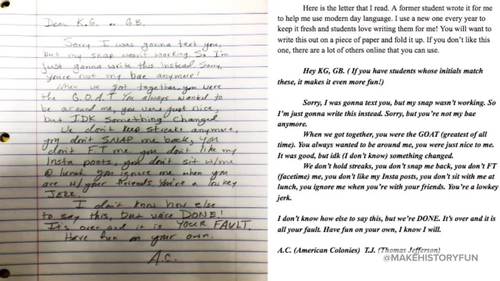 Dear K.G. or G.B.
Sorry I was gonna text you,
but my snap wasn't working. So I'm
just gonna write this instead. Sorry,
you're not my bae anymore!
When we got together, you were
the G.O.A.T. You always wanted to
be around me, you were just nice,
but IDK something changed.
We don't keep streaks anymore,
you don't SNAP me back, you
don't FT me you don't like my
Insta posts, you don't sit w/me
@ lunch you ignore me when you
are w/your friends. You're a lowkey
JERK!
I don't know how else
to say this, but we're DONE!
It's over and it is YOUR FAULT.
Have fun on your own.
A.C.
Here is the letter that I read. A former student wrote it for me
to help me use modern day language. I use a new one every year to
keep it fresh and students love writing them for me! You will want to
write this out on a piece of paper and fold it up. If you don't like this
one, there are a lot of others online that you can use.
Hey KG, GB. ( If you have students whose initials match
these, it makes it even more fun!)
Sorry, I was gonna text you, but my snap wasn't working. So
I'm just gonna write this instead. Sorry, but you're not my bae
anymore.
When we got together, you were the GOAT (greatest of all
time). You always wanted to be around me, you were just nice to me.
It was good, but idk (I don't know) something changed.
We don't hold streaks, you don't snap me back, you don't FT
(facetime) me, you don't like my Insta posts, you don't sit with me at
lunch, you ignore me when you're with your friends. You're a lowkey
jerk.
I don't know how else to say this, but we're DONE. It's over and it is
all your fault. Have fun on your own, I know I will.
A.C. (American Colonies) T.J. (Thomas Jefferson)
@MAKEHISTORYFUN